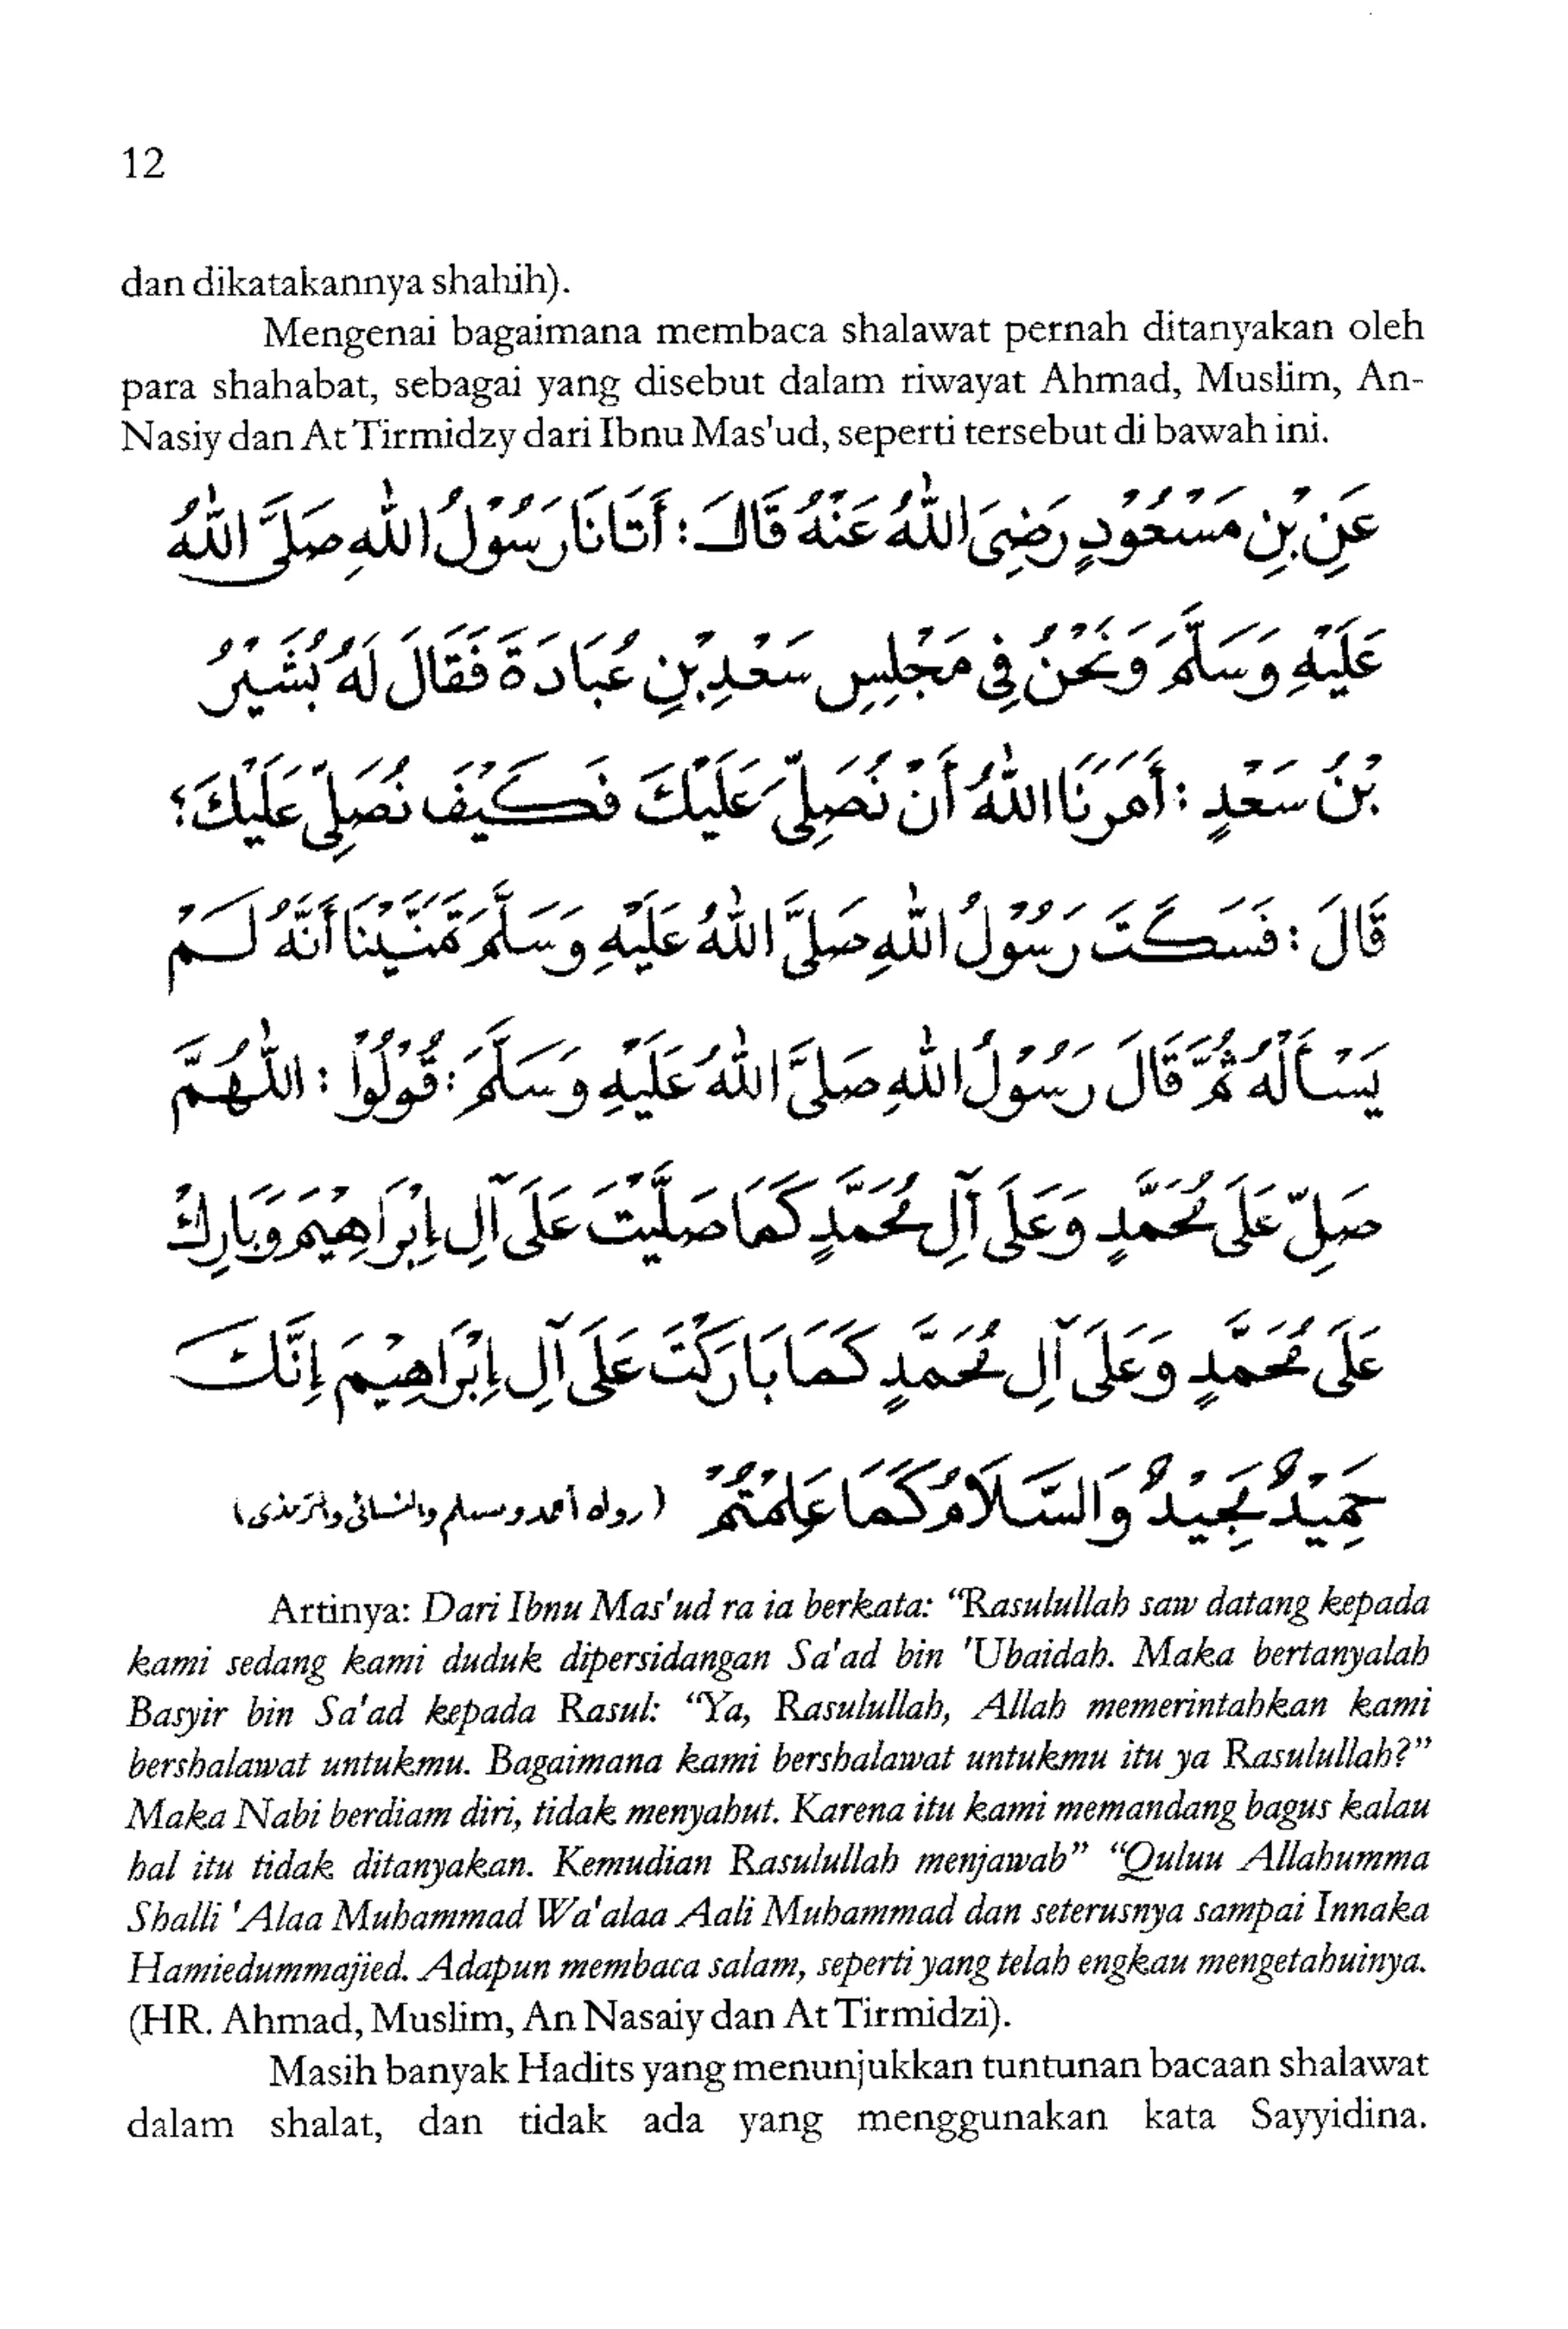 12
dan dikatakannya shahih).
Mengenai bagaimana membaca shalawat pernah ditanyakan oleh
para shahabat, sebagai yang disebut dalam riwayat Ahmad, Muslim, An-
Nasiy dan At Tirmidzy dari Ibnu Mas'ud, seperti tersebut di bawah ini.
عَنِ بْنِ مَسْعُوْدٍ رَضِيَ اللهُ عَنْهُ قَالَ : أَتَانَا رَسُوْلُ اللهِ صَلَّى اللهُ
عَلَيْهِ وَسَلَّمَ وَنَحْنُ فِي مَجْلِسِ سَعْدِ بْنِ عُبَادَةَ فَقَالَ لَهُ بُشَيْرُ
بْنُ سَعْدٍ : أَمَرَنَا اللهُ أَنْ نُصَلِّيَ عَلَيْكَ فَكَيْفَ نُصَلِّيْ عَلَيْكَ؟
قَالَ : فَسَكَتَ رَسُوْلُ اللهِ صَلَّى اللهُ عَلَيْهِ وَسَلَّمَ تَمَنَّيْنَا أَنَّهُ لَمْ
يَسْأَلْهُ ثُمَّ قَالَ رَسُوْلُ اللهِ صَلَّى اللهُ عَلَيْهِ وَسَلَّمَ : قُوْلُوْا : اللّٰهُمَّ
صَلِّ عَلَى مُحَمَّدٍ وَعَلَى آلِ مُحَمَّدٍ كَمَا صَلَّيْتَ عَلَى آلِ إِبْرَاهِيْمَ وَبَارِكْ
عَلَى مُحَمَّدٍ وَعَلَى آلِ مُحَمَّدٍ كَمَا بَارَكْتَ عَلَى آلِ إِبْرَاهِيْمَ إِنَّكَ
حَمِيْدٌ مَجِيْدٌ وَالسَّلَامُ كَمَا عَلِمْتُمْ (رواه أحمد ومسلم والنسائي والترمذى)
Artinya: Dari Ibnu Mas'ud ra ia berkata: “Rasulullah saw datang kepada
kami sedang kami duduk dipersidangan Sa'ad bin 'Ubaidah. Maka bertanyalah
Basyir bin Sa'ad kepada Rasul: “Ya, Rasulullah, Allah memerintahkan kami
bershalawat untukmu. Bagaimana kami bershalawat untukmu itu ya Rasulullah?”
Maka Nabi berdiam diri, tidak menyahut. Karena itu kami memandang bagus kalau
hal itu tidak ditanyakan. Kemudian Rasulullah menjawab” “Quluu Allahumma
Shalli 'Alaa Muhammad Wa'alaa Aali Muhammad dan seterusnya sampai Innaka
Hamiedummajied. Adapun membaca salam, seperti yang telah engkau mengetahuinya.
(HR. Ahmad, Muslim, An Nasaiy dan At Tirmidzi).
Masih banyak Hadits yang menunjukkan tuntunan bacaan shalawat
dalam shalat, dan tidak ada yang menggunakan kata Sayyidina.